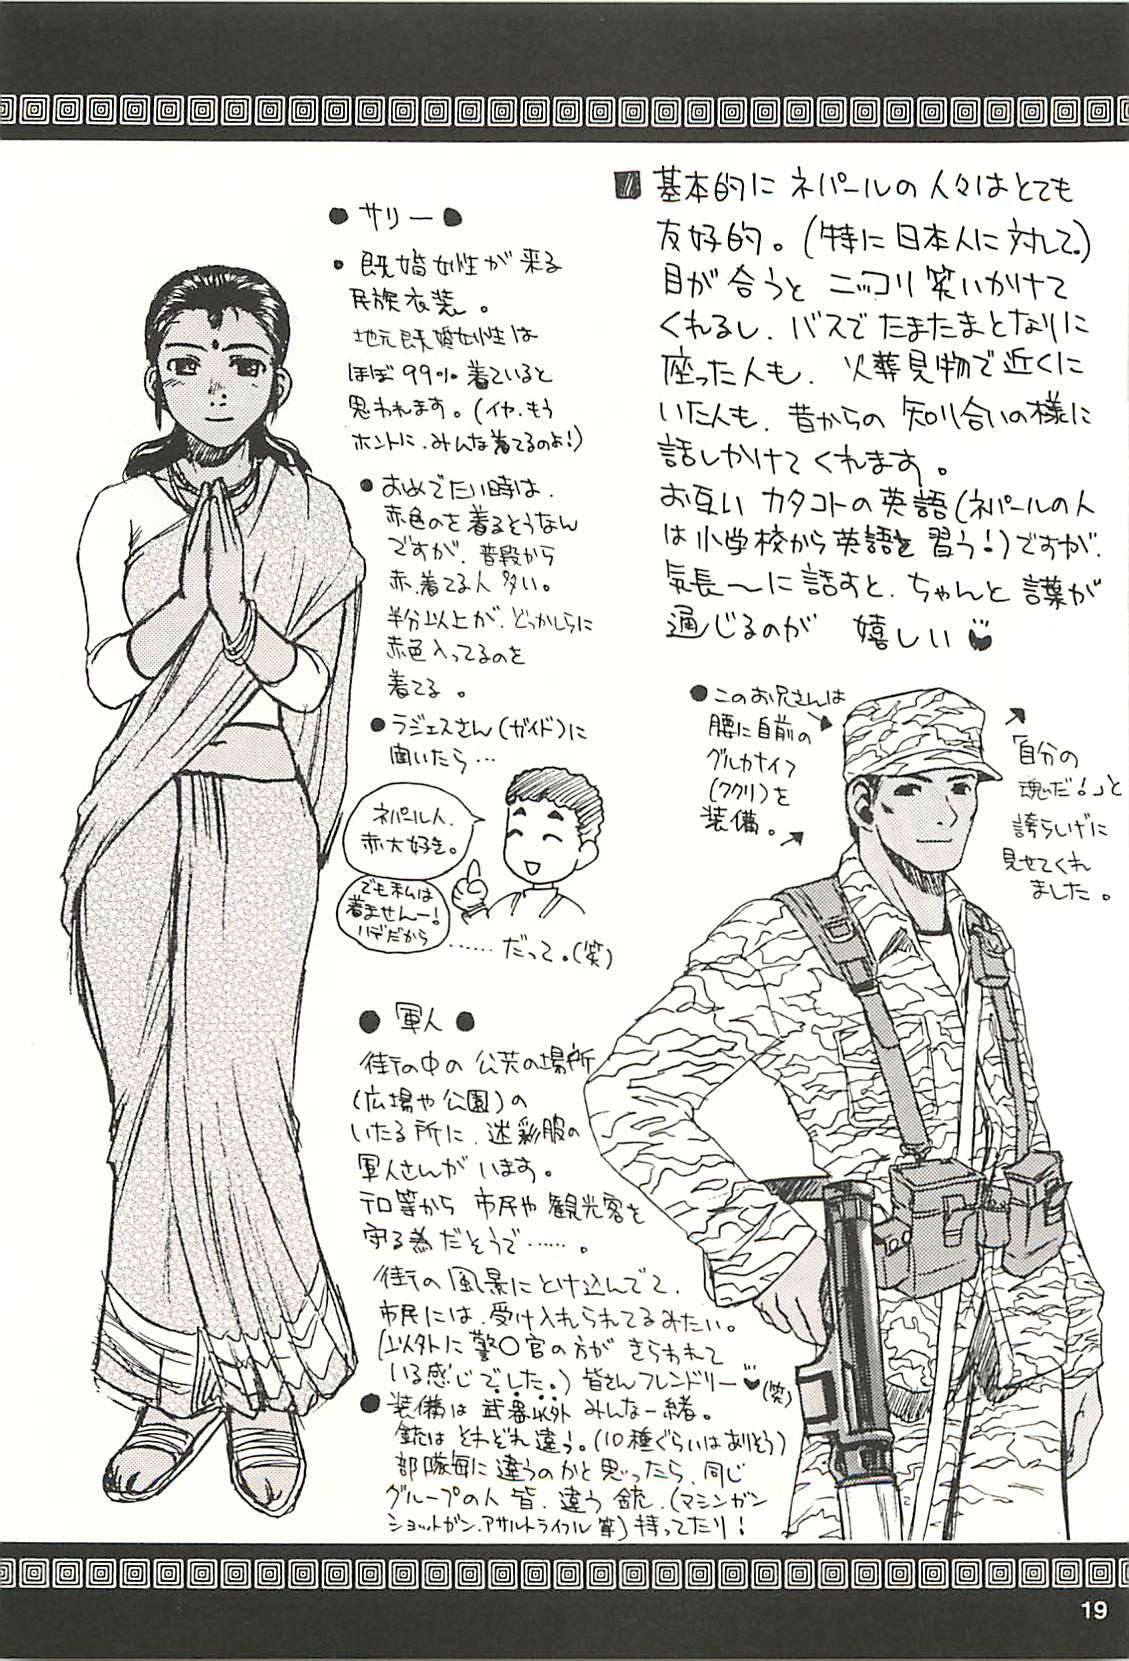 ■ 基本的に ネパールの人々はとても
友好的。(特に日本人に対して。)
目が合うと ニッコリ笑いかけて
くれるし、バスでたまたまとなりに
座った人も、火葬見物で近くに
いた人も、昔からの知り合いの様に
話しかけてくれます。
お互いカタコトの英語(ネパールの人
は小学校から英語を習う!)ですが、
気長〜に話すと、ちゃんと言葉が
通じるのが 嬉しい
●サリー●
・既婚女性が来る
民族衣装。
地元既婚女性は
ほぼ99%着ていると
思われます。(イヤ、もう
ホントに、みんな着てるのよ!)
●おめでたい時は、
赤色のを着るそうなん
ですが、普段から
赤、着てる人多い。
半分以上が、どっかしらに
赤色入ってるのを
着てる。
●ラジェスさん(ガイド)に
聞いたら…
ネパール人、
赤大好き。
でも私は
着ませんー!
ハデだから
……だって。(笑)
●このお兄さんは
腰に自前の
グルカナイフ
(ククリ)を
装備。
「自分の
魂だ!」と
誇らしげに
見せてくれ
ました。
●軍人●
街の中の公共の場所
(広場や公園)の
いたる所に、迷彩服の
軍人さんがいます。
テロ等から市民や観光客を
守る為だそうで……。
街の風景にとけ込んでて、
市民には、受け入れられてるみたい。
(以外に警〇官の方がきらわれて
いる感じでした。)皆さんフレンドリー(笑)
●装備は武器以外みんな一緒。
銃はそれぞれ違う。(10種ぐらいはありそう)
部隊毎に違うのかと思ったら、同じ
グループの人皆、違う銃、(マシンガン
ショットガン、アサルトライフル等)持ってたり!
19